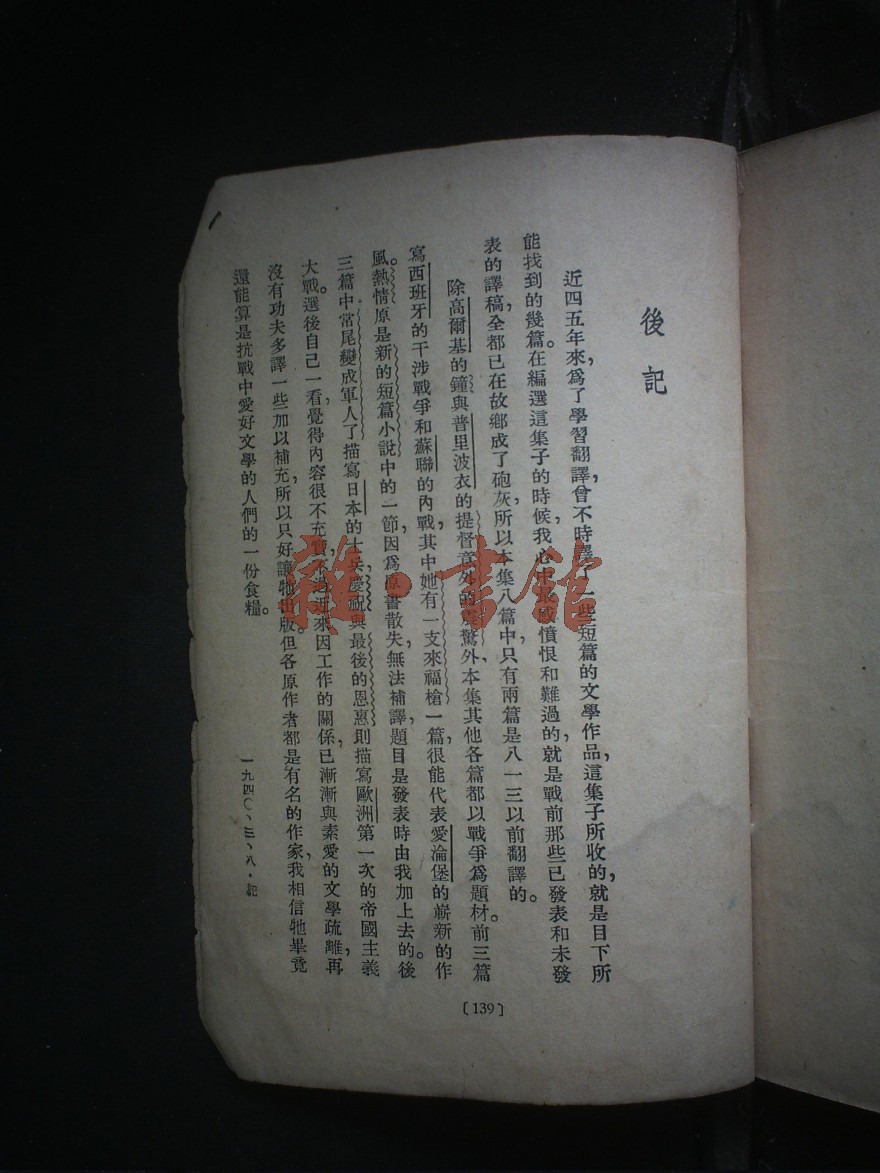 後記
近四五年來，爲了學習翻譯，曾不時譯一些短篇的文學作品，這集子所收的，就是目下所
能找到的幾篇。在編選這集子的時候，我心中憤恨和難過的，就是戰前那些已發表和未發
表的譯稿，全都已在故鄉成了砲灰，所以本集八篇中，只有兩篇是八一三以前翻譯的。
除高爾基的鐘與普里波衣的提督意外的驚外，本集其他各篇都以戰爭爲題材。前三篇
寫西班牙的干涉戰爭和蘇聯的內戰，其中她有一支來福槍一篇，很能代表愛淪堡的嶄新的作
風。熱情原是新的短篇小說中的一節，因爲原書散失，無法補譯，題目是發表時由我加上去的。後
三篇中常尾變成軍人了描寫日本的士兵，慶祝與最後的恩惠則描寫歐洲第一次的帝國主義
大戰。選後自己一看，覺得內容很不充實，不過近來因工作的關係，已漸漸與素愛的文學疏離，再
沒有功夫多譯一些加以補充，所以只好讓牠出版。但各原作者都是有名的作家，我相信牠畢竟
還能算是抗戰中愛好文學的人們的一份食糧。
一九四〇、三、八・記
〔139〕
雜·書館